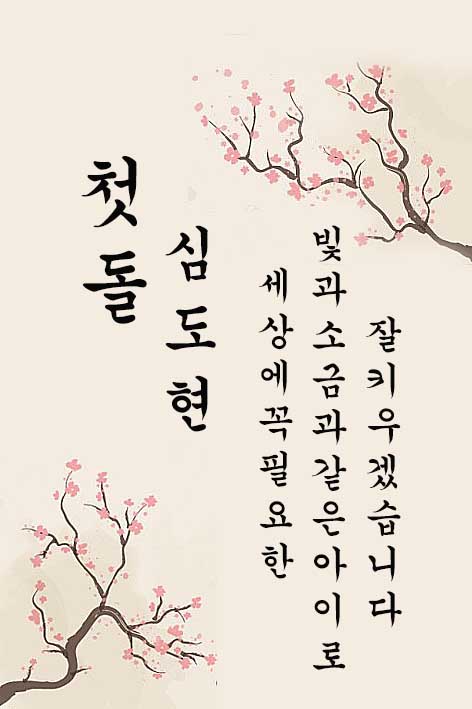 첫돌
심도현
세상에꼭필요한
빛과소금과같은아이로
잘키우겠습니다